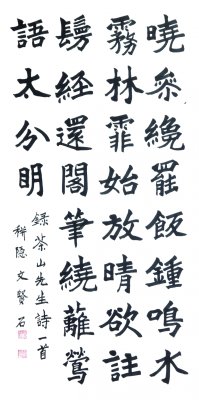 曉參纔罷飯鍾鳴水
霧林霏始放晴欲註
經還閣筆繞蘺鶯
語太分明
錄茶山先生詩一首
隐文賢石